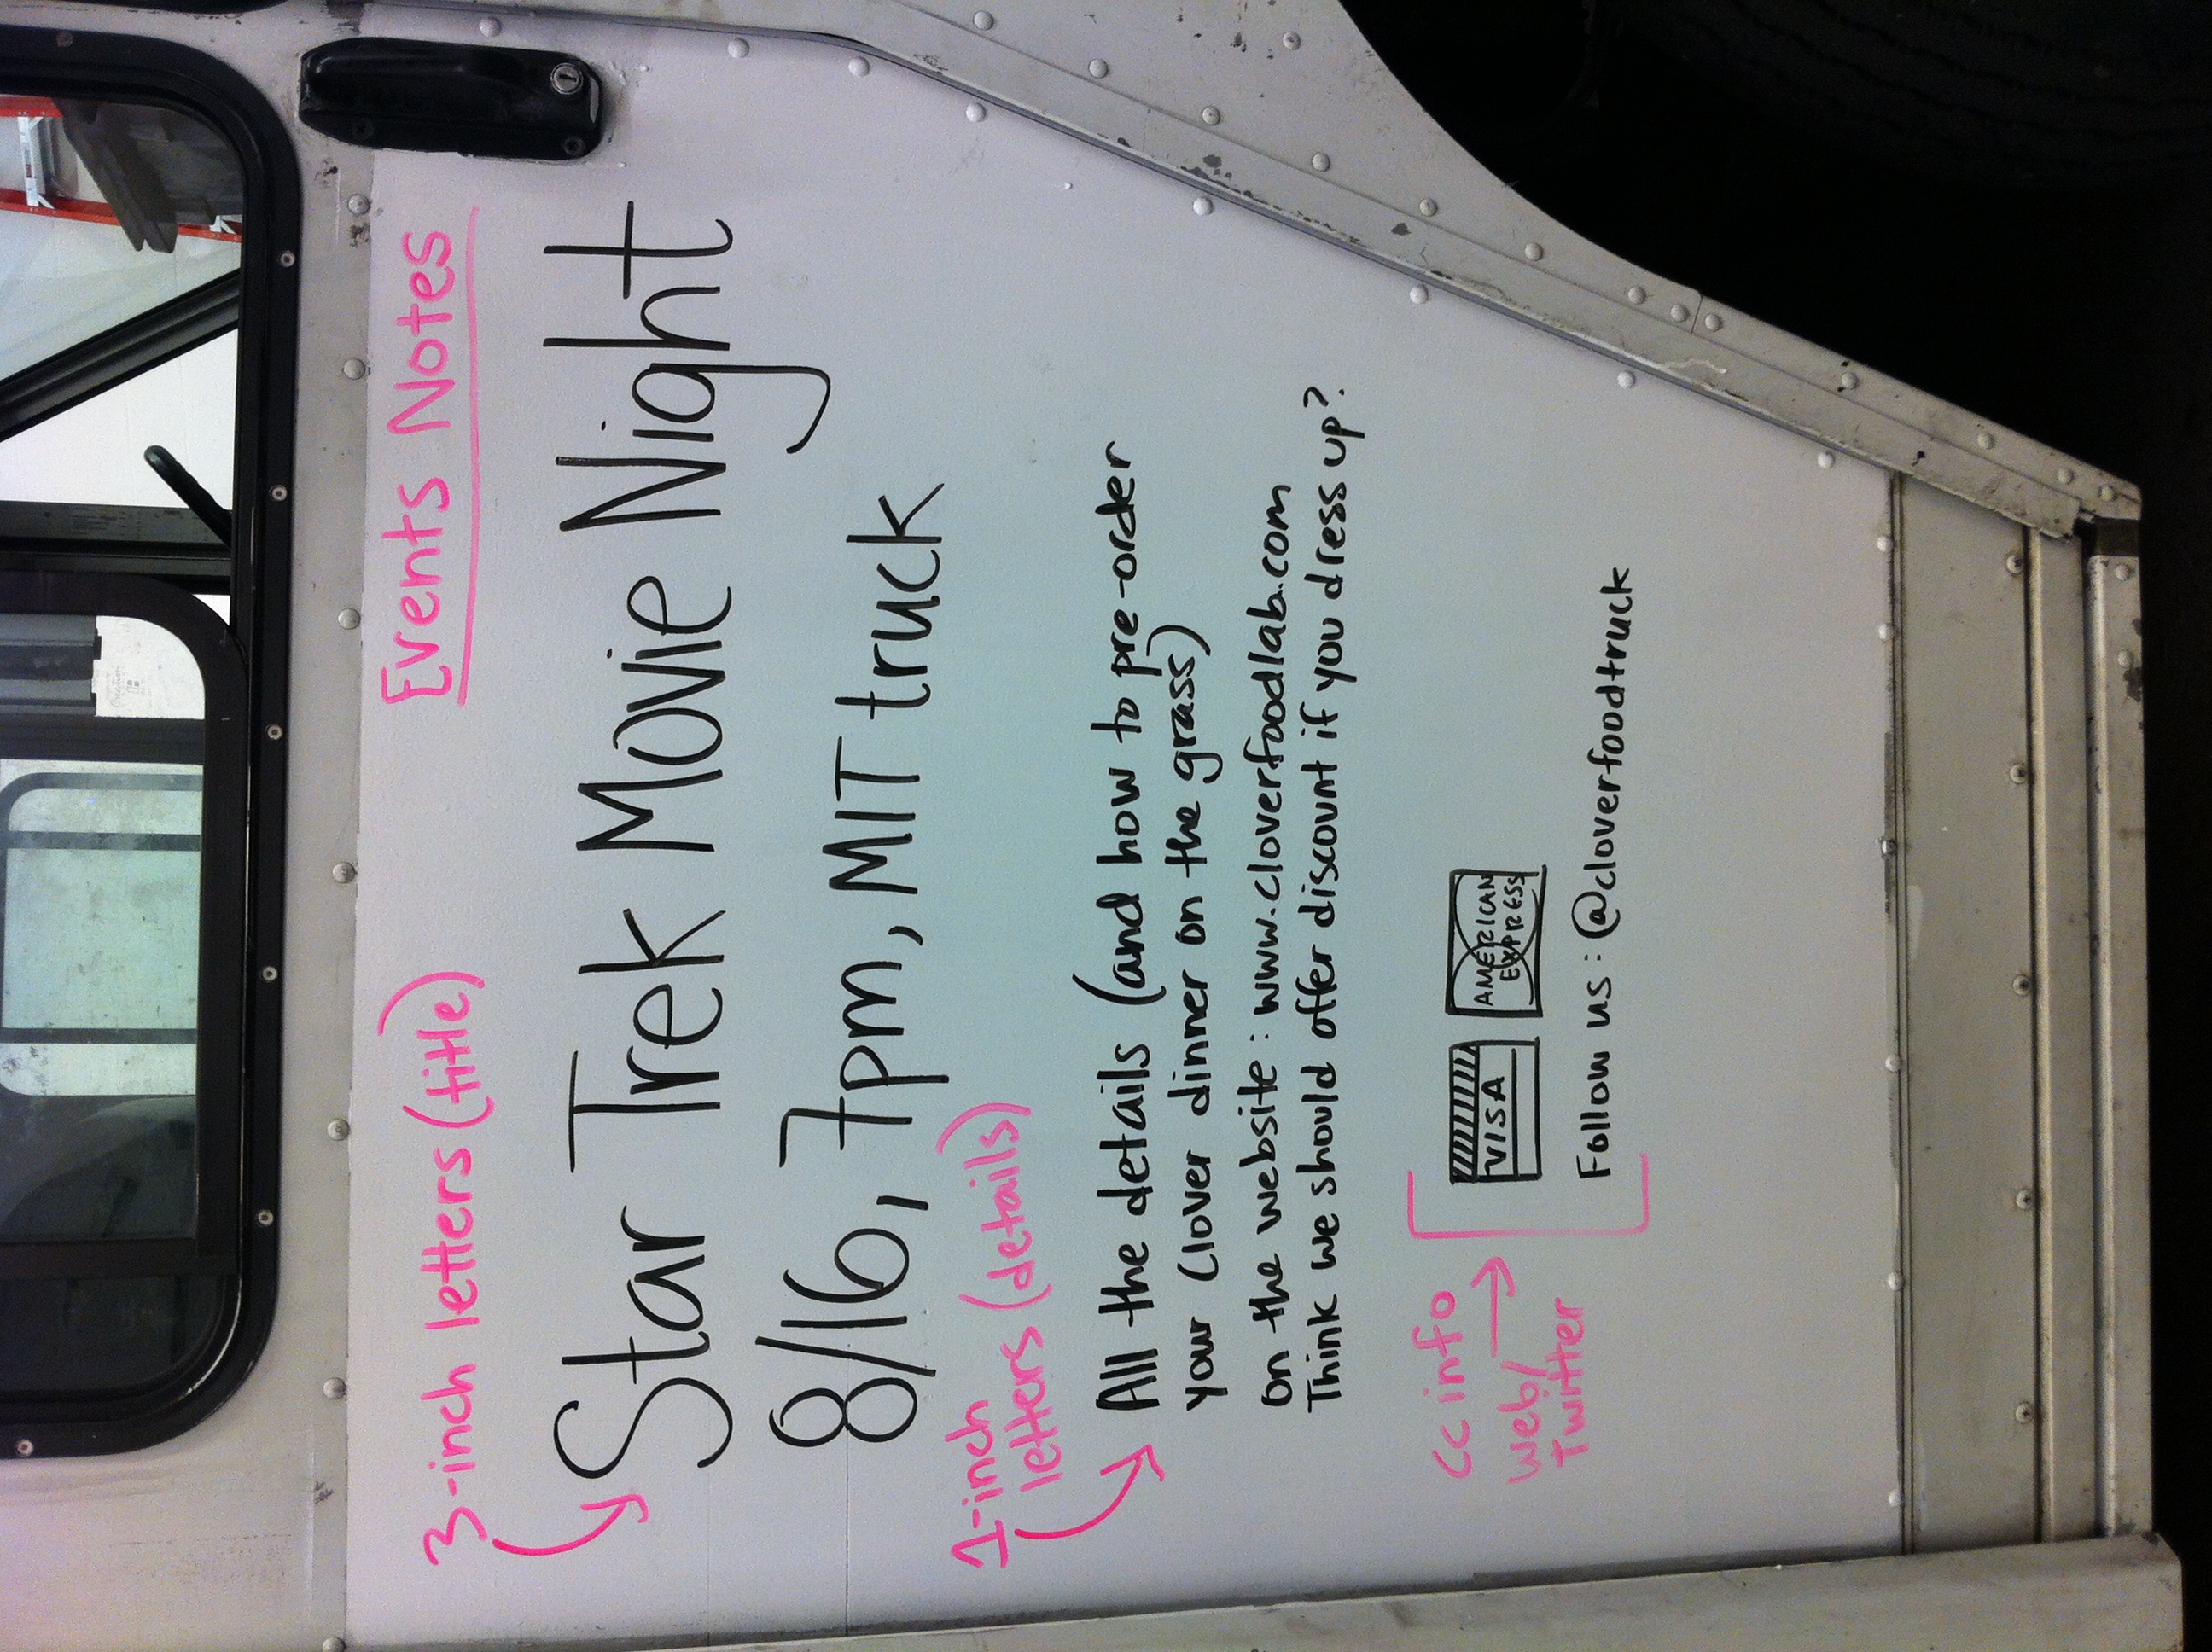 Events Notes
3-inch letters (title)
Star Trek Movie Night
8/16, 7pm, MIT truck
1-inch
letters (details)
All the details (and how to pre-order
your Clover dinner on the grass)
on the website: www.cloverfoodlab.com
Think we should offer discount if you dress up?
cc info
web/
Twitter
VISA
AMERICAN
EXPRESS
Follow us: @cloverfoodtruck